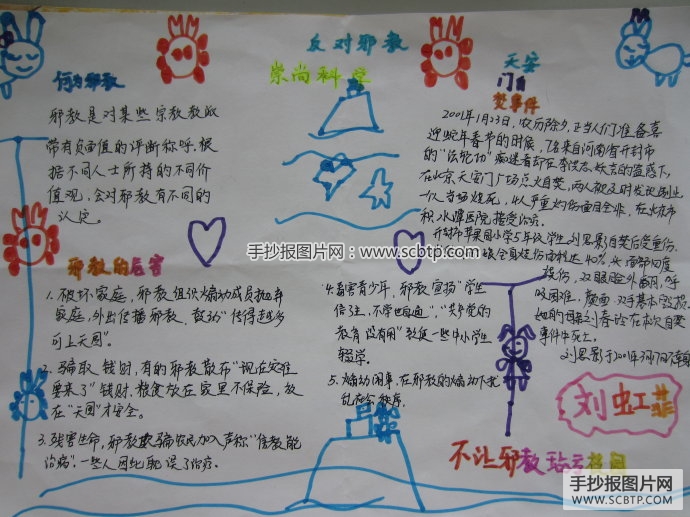 反对邪教
崇尚科学
何为邪教
邪教是对某些宗教教派
带有负面值的评断称呼,根
据不同人士所持的不同价
值观,会对邪教有不同的
认定。
邪教的危害
1.破坏家庭,邪教组织煽动成员抛弃
家庭,外出传播邪教,鼓动"传得越多
可上天国"。
2.骗取钱财,有的邪教散布"现在灾难
要来了"钱财、粮食放在家里不保险,放
在"天国"才安全。
3.残害生命,邪教欺骗农民加入声称"信教能
治病",一些人因此耽误了治疗。
4.毒害青少年,邪教宣扬"学生
信了主,不学也自通",
教育没有用"致使一些中小学生
辍学。
5.煽动闹事,在邪教的煽动下扰
乱社会秩序。
天安
门自
焚事件
2001年1月23日,农历除夕,正当人们准备喜
迎蛇年春节的时候,7名来自河南省开封市
的"法轮功"痴迷者却在李洪志妖言的蛊惑下,
在北京天安门广场点火自焚,两人被及时发现制止
一人当场烧死,4人严重灼伤面目全非,在北京市
积水潭医院接受治疗。
开封市苹果园小学5年级学生刘思影自焚后受重伤,
全身烧伤面积达40%,头面部四度
烧伤,双眼睑外翻,呼
吸困难,颜面、双手基本毁损,
她的母亲刘春玲在本次自焚
事件中死亡。
刘思影于2001年3月17日
刘虹菲
不让邪教玷污校园
手抄报图片网:www.scbtp.com
手抄报图片网
www.SCBTP.COM